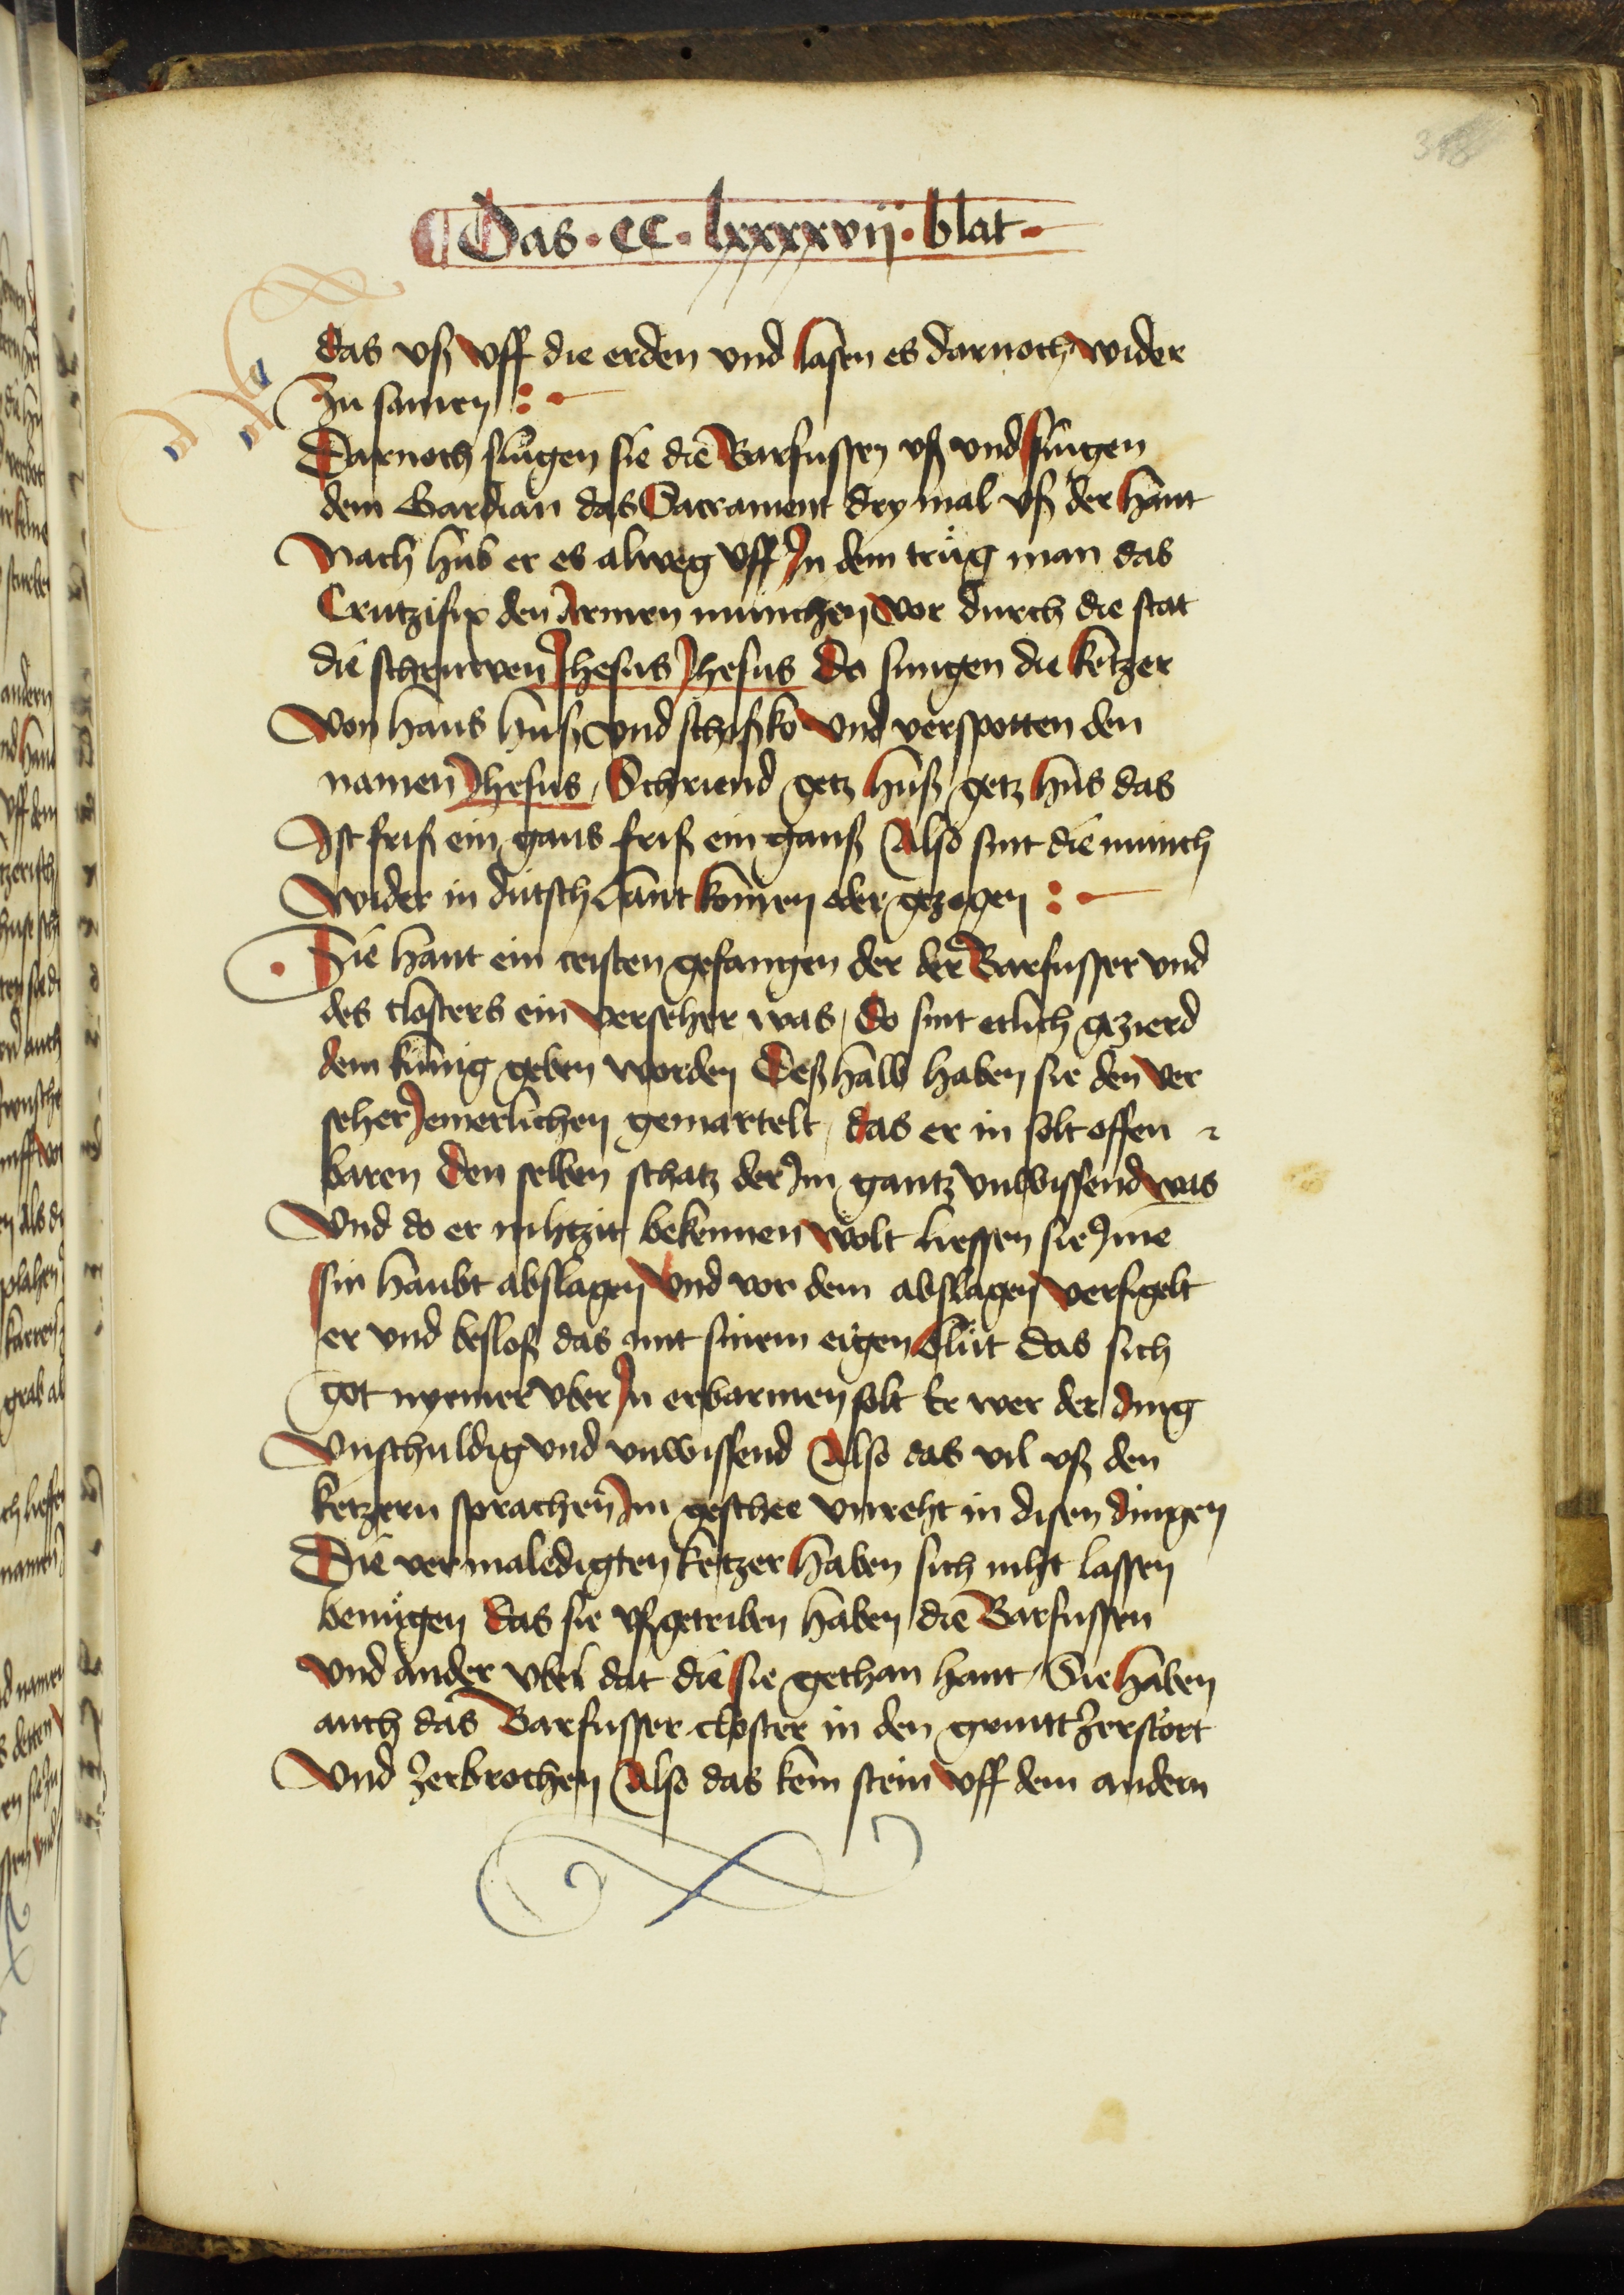 Das · CC · lxxxxvij · blat ·
das vß vff die erden vnd lasen es darnoch wider
Zu samen :
Darnoch slügen sie die Barfussen vß vnd slügen
dem Gardian das Sacrament dry mal vß der hant
Nach hub er es alweg vff In dem trüg man das
Crutzifix den armen münchen vor durch die stat
die schruwen Jhesus Jhesus Do sungen die ketzer
Von hans huß vnd schißko vnd verspotten den
namen Jhesus / Schriend getz huß getz hus das
Ist friß ein gans friß ein ganß Also sint die münch
Wider in dütsch lant komen oder gezogen :
Sie hant ein cristen gefangen der der Barfusser vnd
des closters ein verseher was / Do sint etlich gezierd
dem künig geben worden Deßhalb haben sie den ver
seher Jemerlichen gemartelt / das er in solt offen
baren den selben schatz der Im gantz vnwissend was
Vnd do er nihtzit bekennen wolt liessen sie Ime
sin haubt abslagen Vnd vor dem abslagen versigelt
er vnd besloß das mit sinem eigen blüt das sich
got nyemer vber In erbarmen solt Er wer der ding
Vnschuldig vnd vnwissend Also das vil vß den
ketzern sprachen Im geschee vnreht in disen dingen
Die vermaledigten ketzer haben sich niht lassen
benügen das sie vßgetriben haben die Barfussen
vnd ander vbel dät die sie gethan hant / Sie haben
auch das Barfusser closter in den gruntt Zerstört
Vnd Zerbrochen Also das kein stein vff dem andern